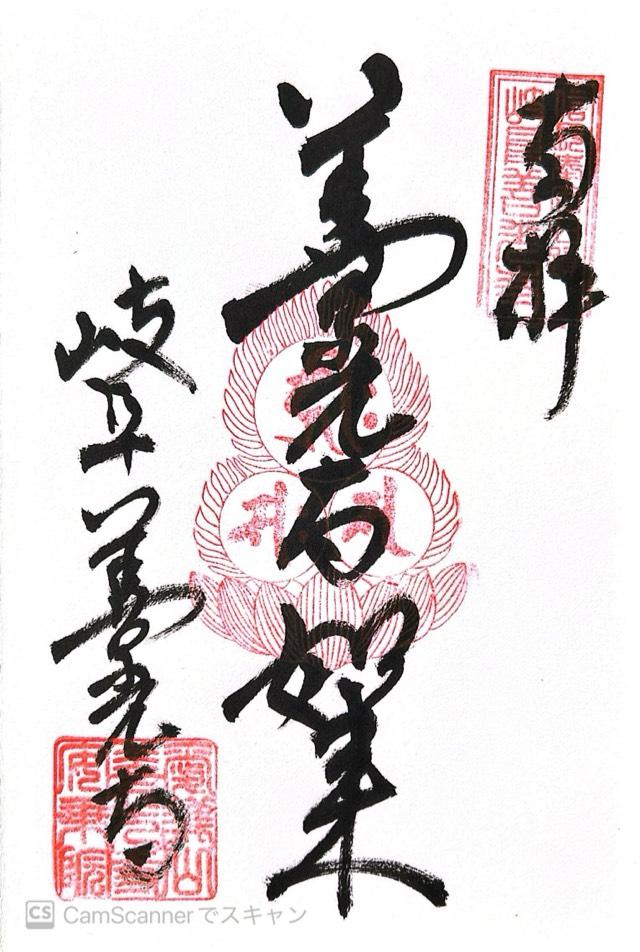 奉拝
善光寺
如来
岐阜善光寺
CS CamScannerでスキャン